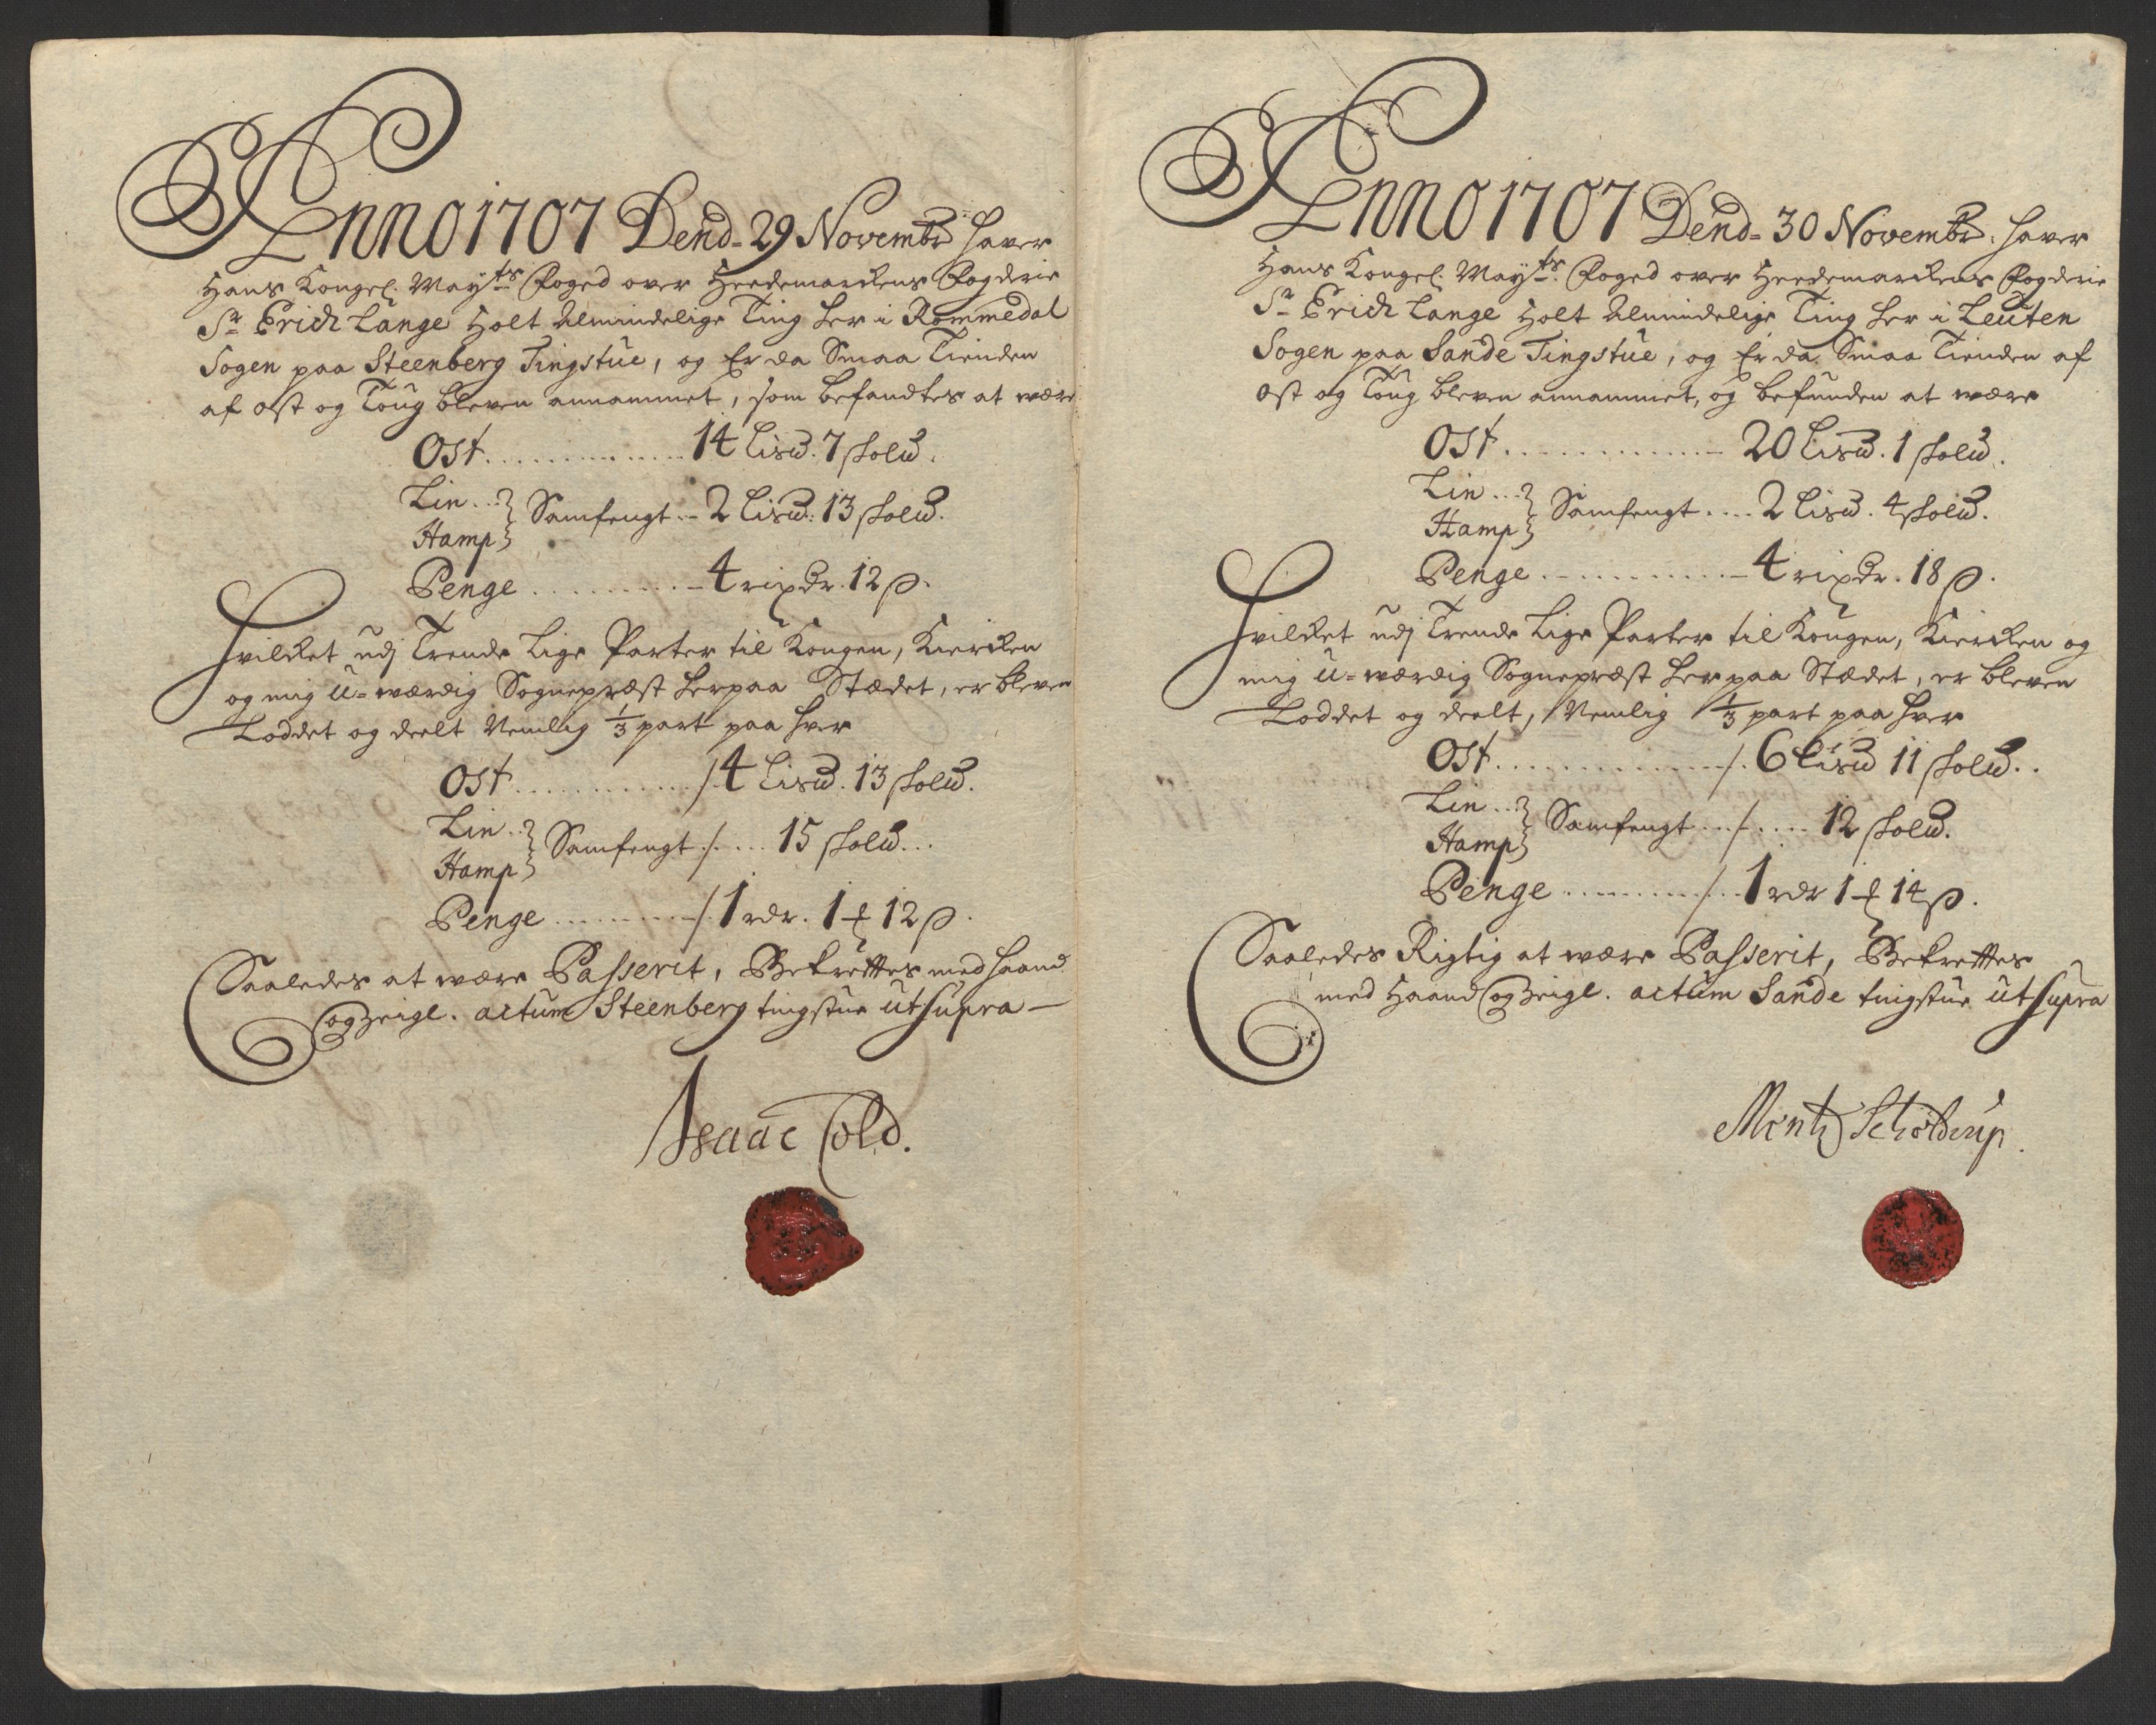 Anno 1707 Dend. 29 Novembr. haver
Hans Kongel. May.ts Foged over Heedemarckens Fogderie
Sr. Erich Lange Holt Almindelige Ting her i Rommedal
Sogen paa Steenberg Tingstue, og Er da Smaa Tienden
af ost og Toug bleven annammet, som befandtes at være
Ost ............ 14 Lis℔. 7 skol℔.
Lin ..} Samfengt .. 2 Lis℔. 13 skol℔.
Hamp}
Penge ......... 4 rixdr. 12 β.
Hvilcket udj Trende Lige Parter til Kongen, Kiercken
og mig U=værdig Sognepræst her paa Stædet, er bleven
Loddet og deelt Nemlig 1/3 part paa hver
Ost ............ /. 4 Lis℔. 13 skol℔.
Lin ..} Samfengt ./. ... 15 skol℔...
Hamp}
Penge ......... /. 1 rdr. 1 ʒ 12 β.
Saaledes at være Passerit, Bekreftes med haand
og Zeigl. actum Steenberg tingstue ut supra –
Isaac Cold.
Anno 1707 Dend. 30 Novembr. haver
Hans Kongel. May.ts Foged over Heedemarckens Fogderie
Sr. Erich Lange Holt Almindelige Ting her i Leuten
Sogen paa Sande Tingstue, og Er da Smaa Tienden af
ost og Toug bleven annammet, og befunden at være
Ost ............ 20 Lis℔. 1 skol℔.
Lin ...} Samfengt .... 2 Lis℔. 4 skol℔.
Hamp}
Penge ............ 4 rixdr. 18 β.
Hvilcket udj Trende Lige Parter til Kongen, Kiercken og
mig U=værdig Sognepræst her paa Stædet, er bleven
Loddet og deelt, Nemlig 1/3 part paa hver
Ost ............ /. 6 Lis℔ 11 skol℔..
Lin ..} Samfengt .../. .... 12 skol℔.
Hamp}
Penge ......... /. 1 rdr 1 ʒ 14 β.
Saaledes Rigtig at være Passerit, Bekreftes
med Haand og Zeigl. actum Sande tingstue ut supra
Mentz Schölderup.